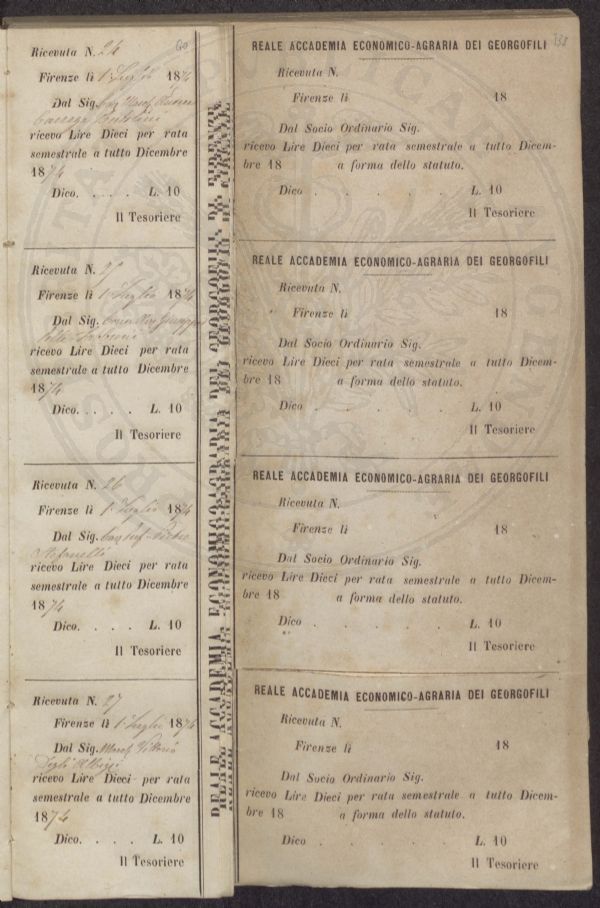 Ricevuta N. 24
Firenze li 1 Luglio 1874
Dal Sig.
ricevo Lire Dieci per rata
semestrale a tutto Dicembre
1874
Dico. . . . . L. 10
Il Tesoriere
Ricevuta N.
Firenze li 1 Luglio 1874
Dal Sig.
ricevo Lire Dieci per rata
semestrale a tutto Dicembre
1874
Dico. . . . . L. 10
Il Tesoriere
Ricevuta N. 26
Firenze li 1 Luglio 1874
Dal Sig.
Stefanelli
ricevo Lire Dieci per rata
semestrale a tutto Dicembre
1874
Dico. . . . L. 10
Il Tesoriere
Ricevuta N. 27
Firenze li 1 Luglio 1874
Dal Sig. March Vittorio
Degli Albizzi
ricevo Lire Dieci per rata
semestrale a tutto Dicembre
1874
Dico. . . . L. 10
Il Tesoriere
REALE ACCADEMIA ECONOMICO-AGRARIA DEI GEORGOFILI DI FIRENZE
REALE ACCADEMIA ECONOMICO-AGRARIA DEI GEORGOFILI
Ricevuta N.
Firenze li 18
Dal Socio Ordinario Sig.
ricevo Lire Dieci per rata semestrale a tutto Dicem-
bre 18 a forma dello statuto.
Dico . . . . . L. 10
Il Tesoriere
REALE ACCADEMIA ECONOMICO-AGRARIA DEI GEORGOFILI
Ricevuta N.
Firenze li 18
Dal Socio Ordinario Sig.
ricevo Lire Dieci per rata semestrale a tutto Dicem-
bre 18 a forma dello statuto.
Dico . . . . . L. 10
Il Tesoriere
REALE ACCADEMIA ECONOMICO-AGRARIA DEI GEORGOFILI
Ricevuta N.
Firenze li 18
Dal Socio Ordinario Sig.
ricevo Lire Dieci per rata semestrale a tutto Dicem-
bre 18 a forma dello statuto.
Dico . . . . . L. 10
Il Tesoriere
REALE ACCADEMIA ECONOMICO-AGRARIA DEI GEORGOFILI
Ricevuta N.
Firenze li 18
Dal Socio Ordinario Sig.
ricevo Lire Dieci per rata semestrale a tutto Dicem-
bre 18 a forma dello statuto.
Dico . . . . . L. 10
Il Tesoriere